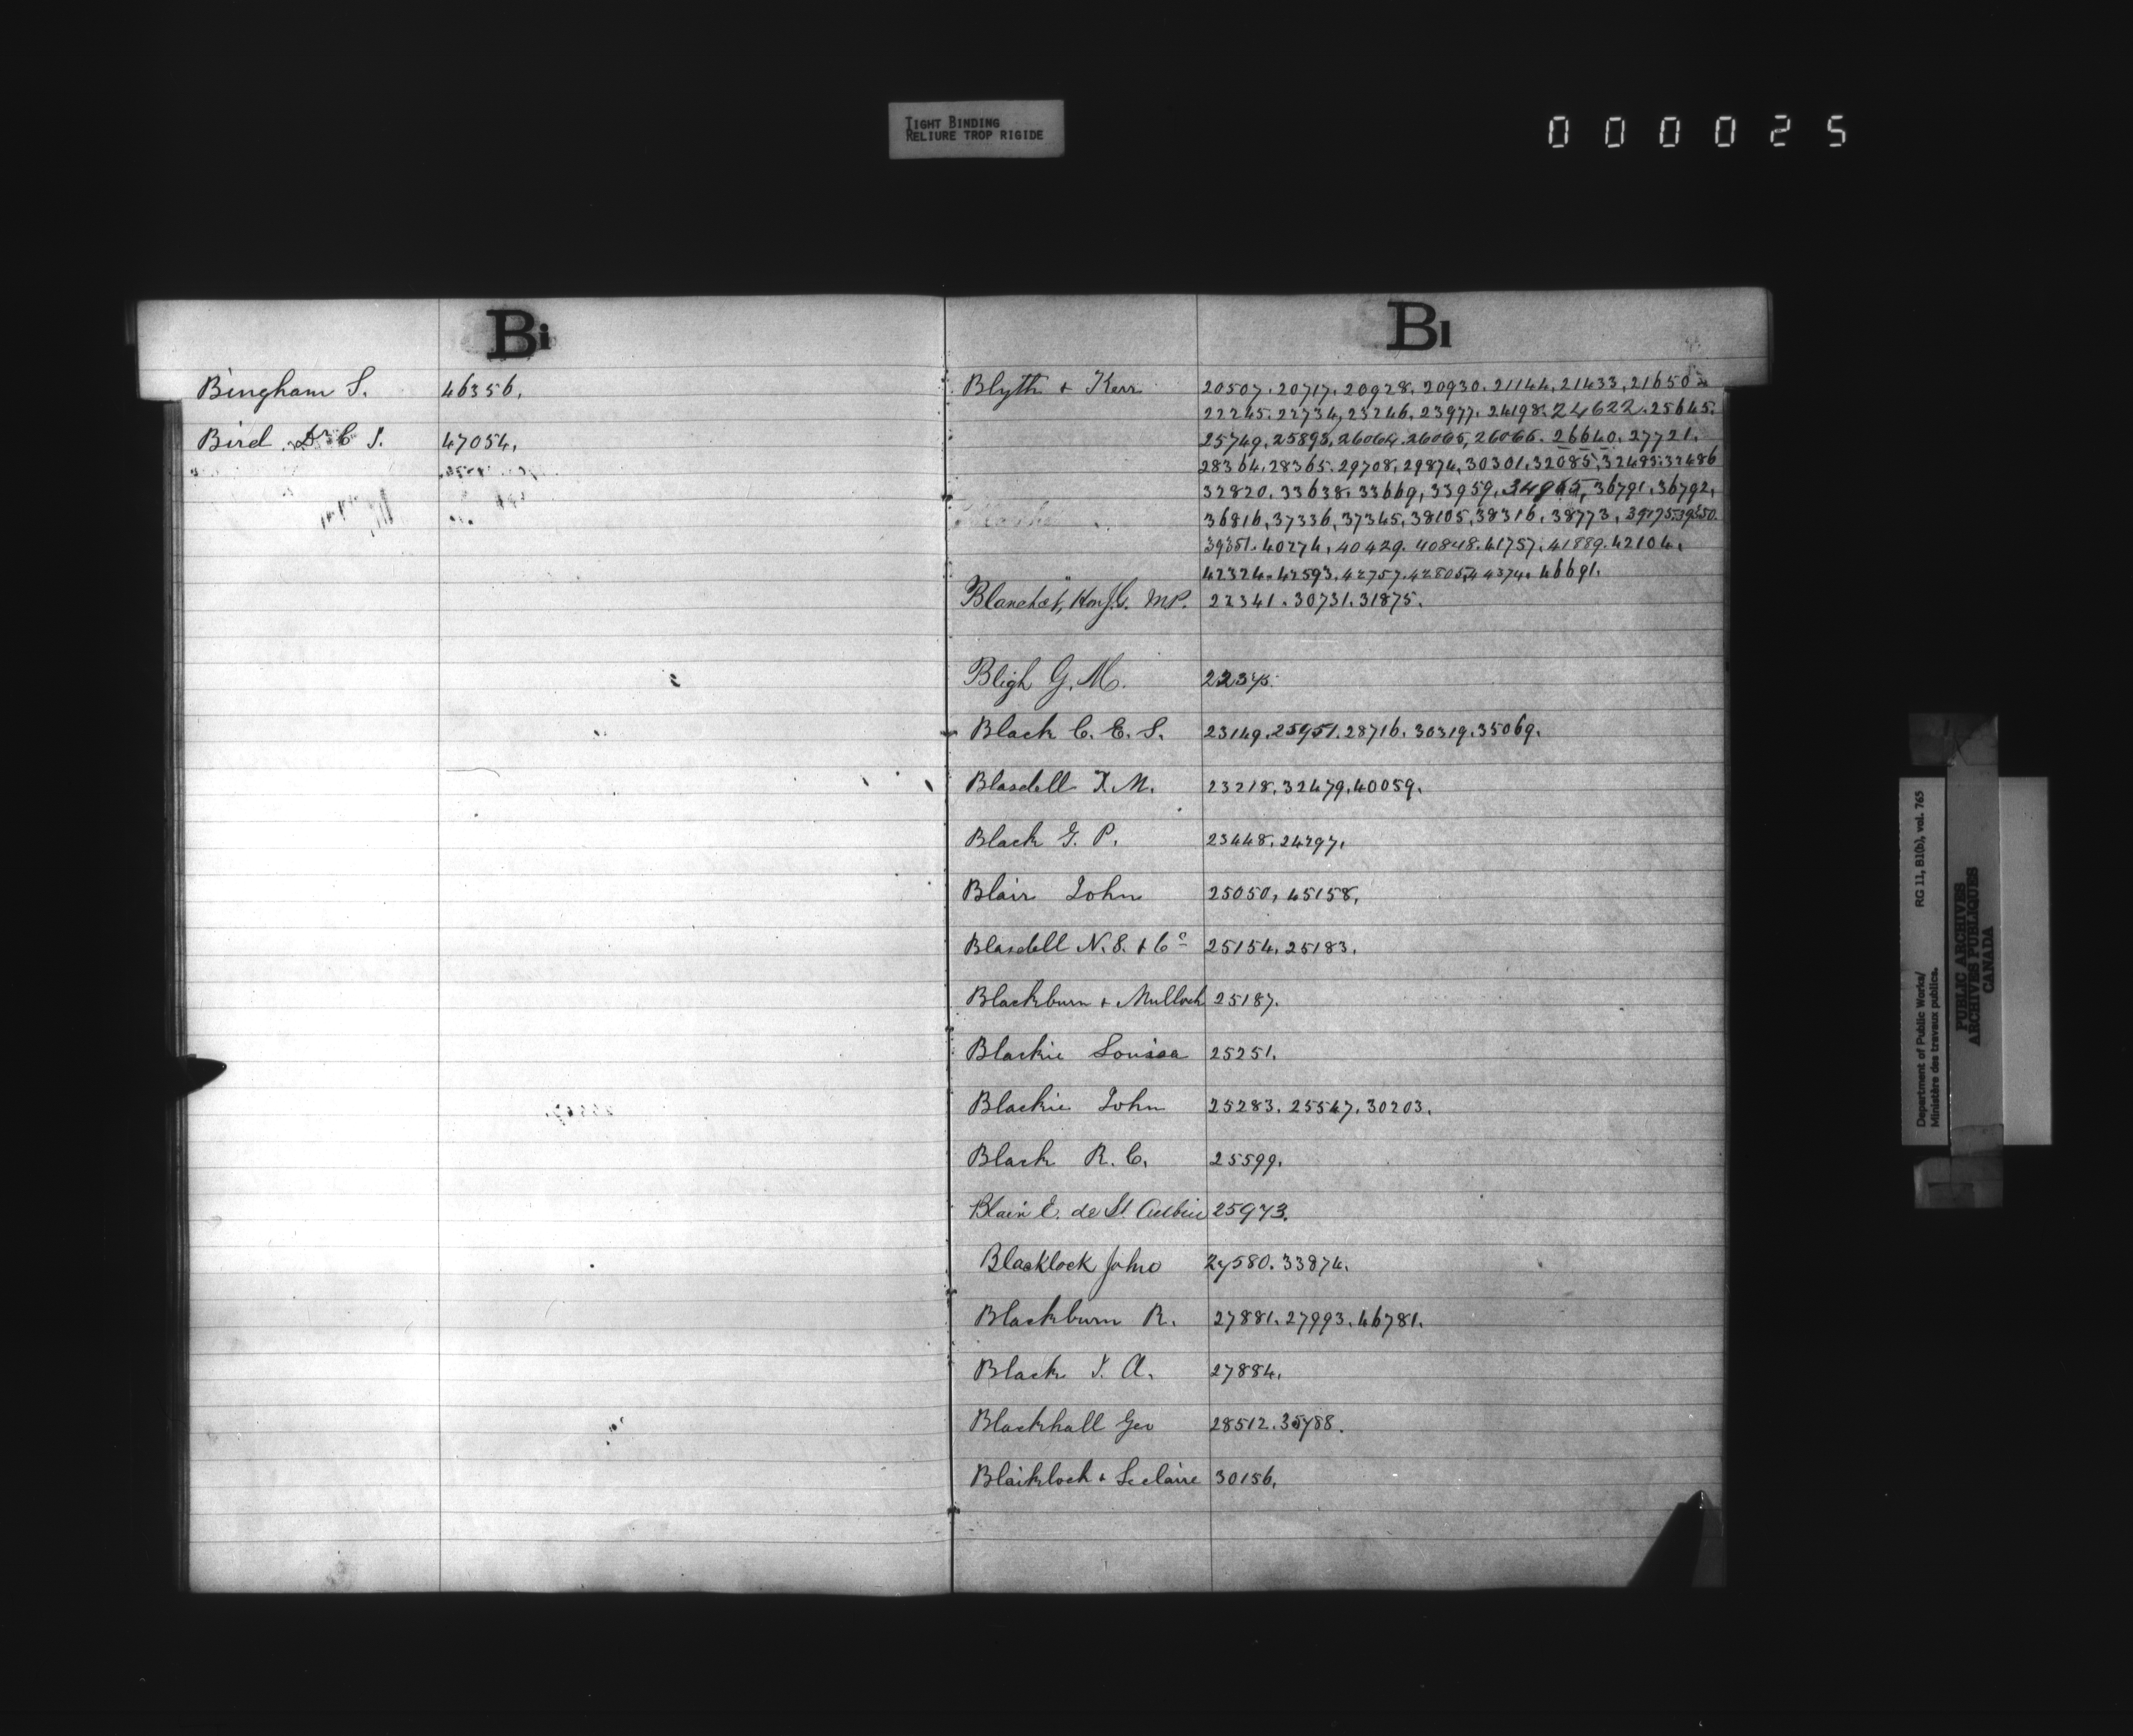 TIGHT BINDING
RELIURE TROP RIGIDE
000025
Bi
Bingham S. 46356.
Bird Dr C S. 47054.
Bl
Blyth & Kerr 20507. 20717. 20928. 20930. 21144, 21433, 21650
22245. 22734, 23246, 23977. 24198. 24622. 25645.
25749, 25898, 26064. 26065, 26066. 26640. 27721.
28364. 28365. 29708, 29874, 30301. 32085, 32485. 32486
32820. 33638. 33669, 33959, 34965, 36791. 36792,
36816, 37336, 37345, 38105, 38316, 38773, 39275. 39350.
39351. 40274, 40429. 40848. 41757. 41889. 42104.
42324. 42593. 42757. 42805. 44374. 46691.
Blanchet, Hon J.G. M.P. 22341. 30731. 31875.
Bligh G. M. 22375.
Black C. E. S. 23149. 25951. 28716. 30319. 35069.
Blasdell T. M. 23218. 32479. 40059.
Black G. P. 23448. 24297.
Blair John 25050, 45158,
Blasdell N. S. & Co 25154. 25183.
Blackburn & Mulloch 25187.
Blackie Louisa 25251.
Blackie John 25283. 25547. 30203.
Black R. C. 25599.
Blain E. de St Aubin 25973.
Blacklock John 27580. 33874.
Blackburn R. 27881. 27993. 46781.
Black J. A. 27884.
Blackhall Geo 28512. 35788.
Blaiklock & Leclaire 30156.
Department of Public Works/ RG 11, B1(b), vol. 765
Ministère des travaux publics.
PUBLIC ARCHIVES
ARCHIVES PUBLIQUES
CANADA